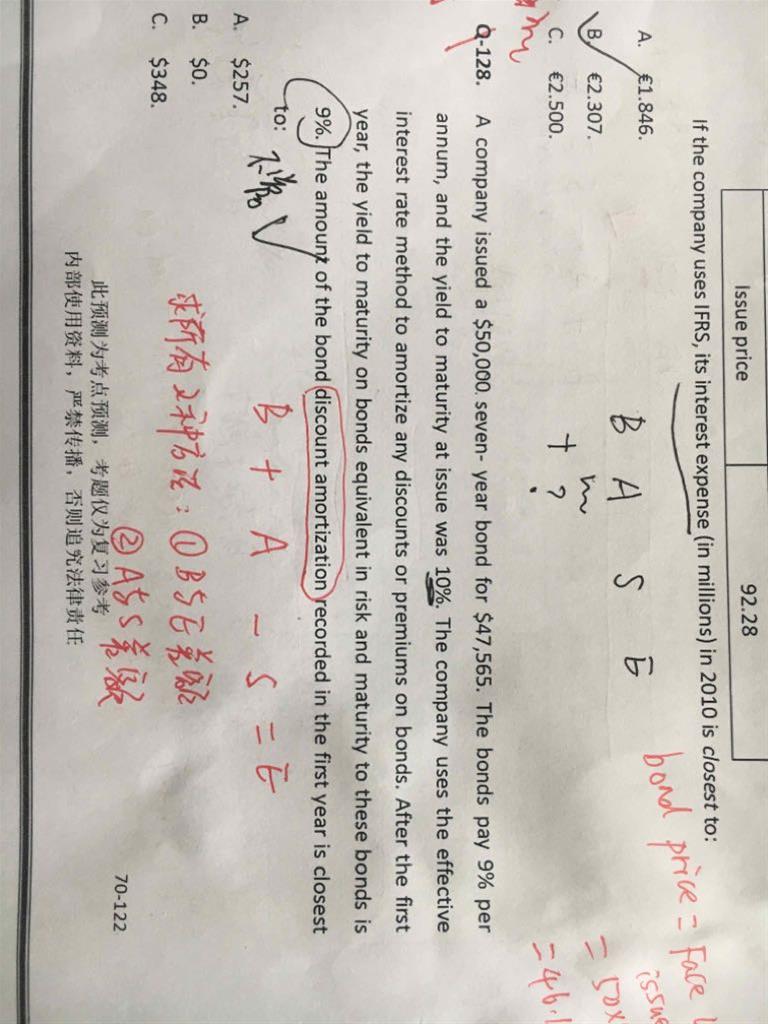 Issue price 92.28
If the company uses IFRS, its interest expense (in millions) in 2010 is closest to:
A. €1.846.
B. €2.307.
C. €2.500.
B A S E
m
+ ?
bond price = Face
issue
= 50x
= 46.1
Q-128. A company issued a $50,000. seven- year bond for $47,565. The bonds pay 9% per
annum, and the yield to maturity at issue was 10%. The company uses the effective
interest rate method to amortize any discounts or premiums on bonds. After the first
year, the yield to maturity on bonds equivalent in risk and maturity to these bonds is
9%. The amount of the bond discount amortization recorded in the first year is closest
to:
A. $257.
B. $0.
C. $348.
B + A - S = E
求所有2种方法: ①B与E差额
②A与S差额
此预测为考点预测，考题仅为复习参考
内部使用资料，严禁传播，否则追究法律责任
70-122